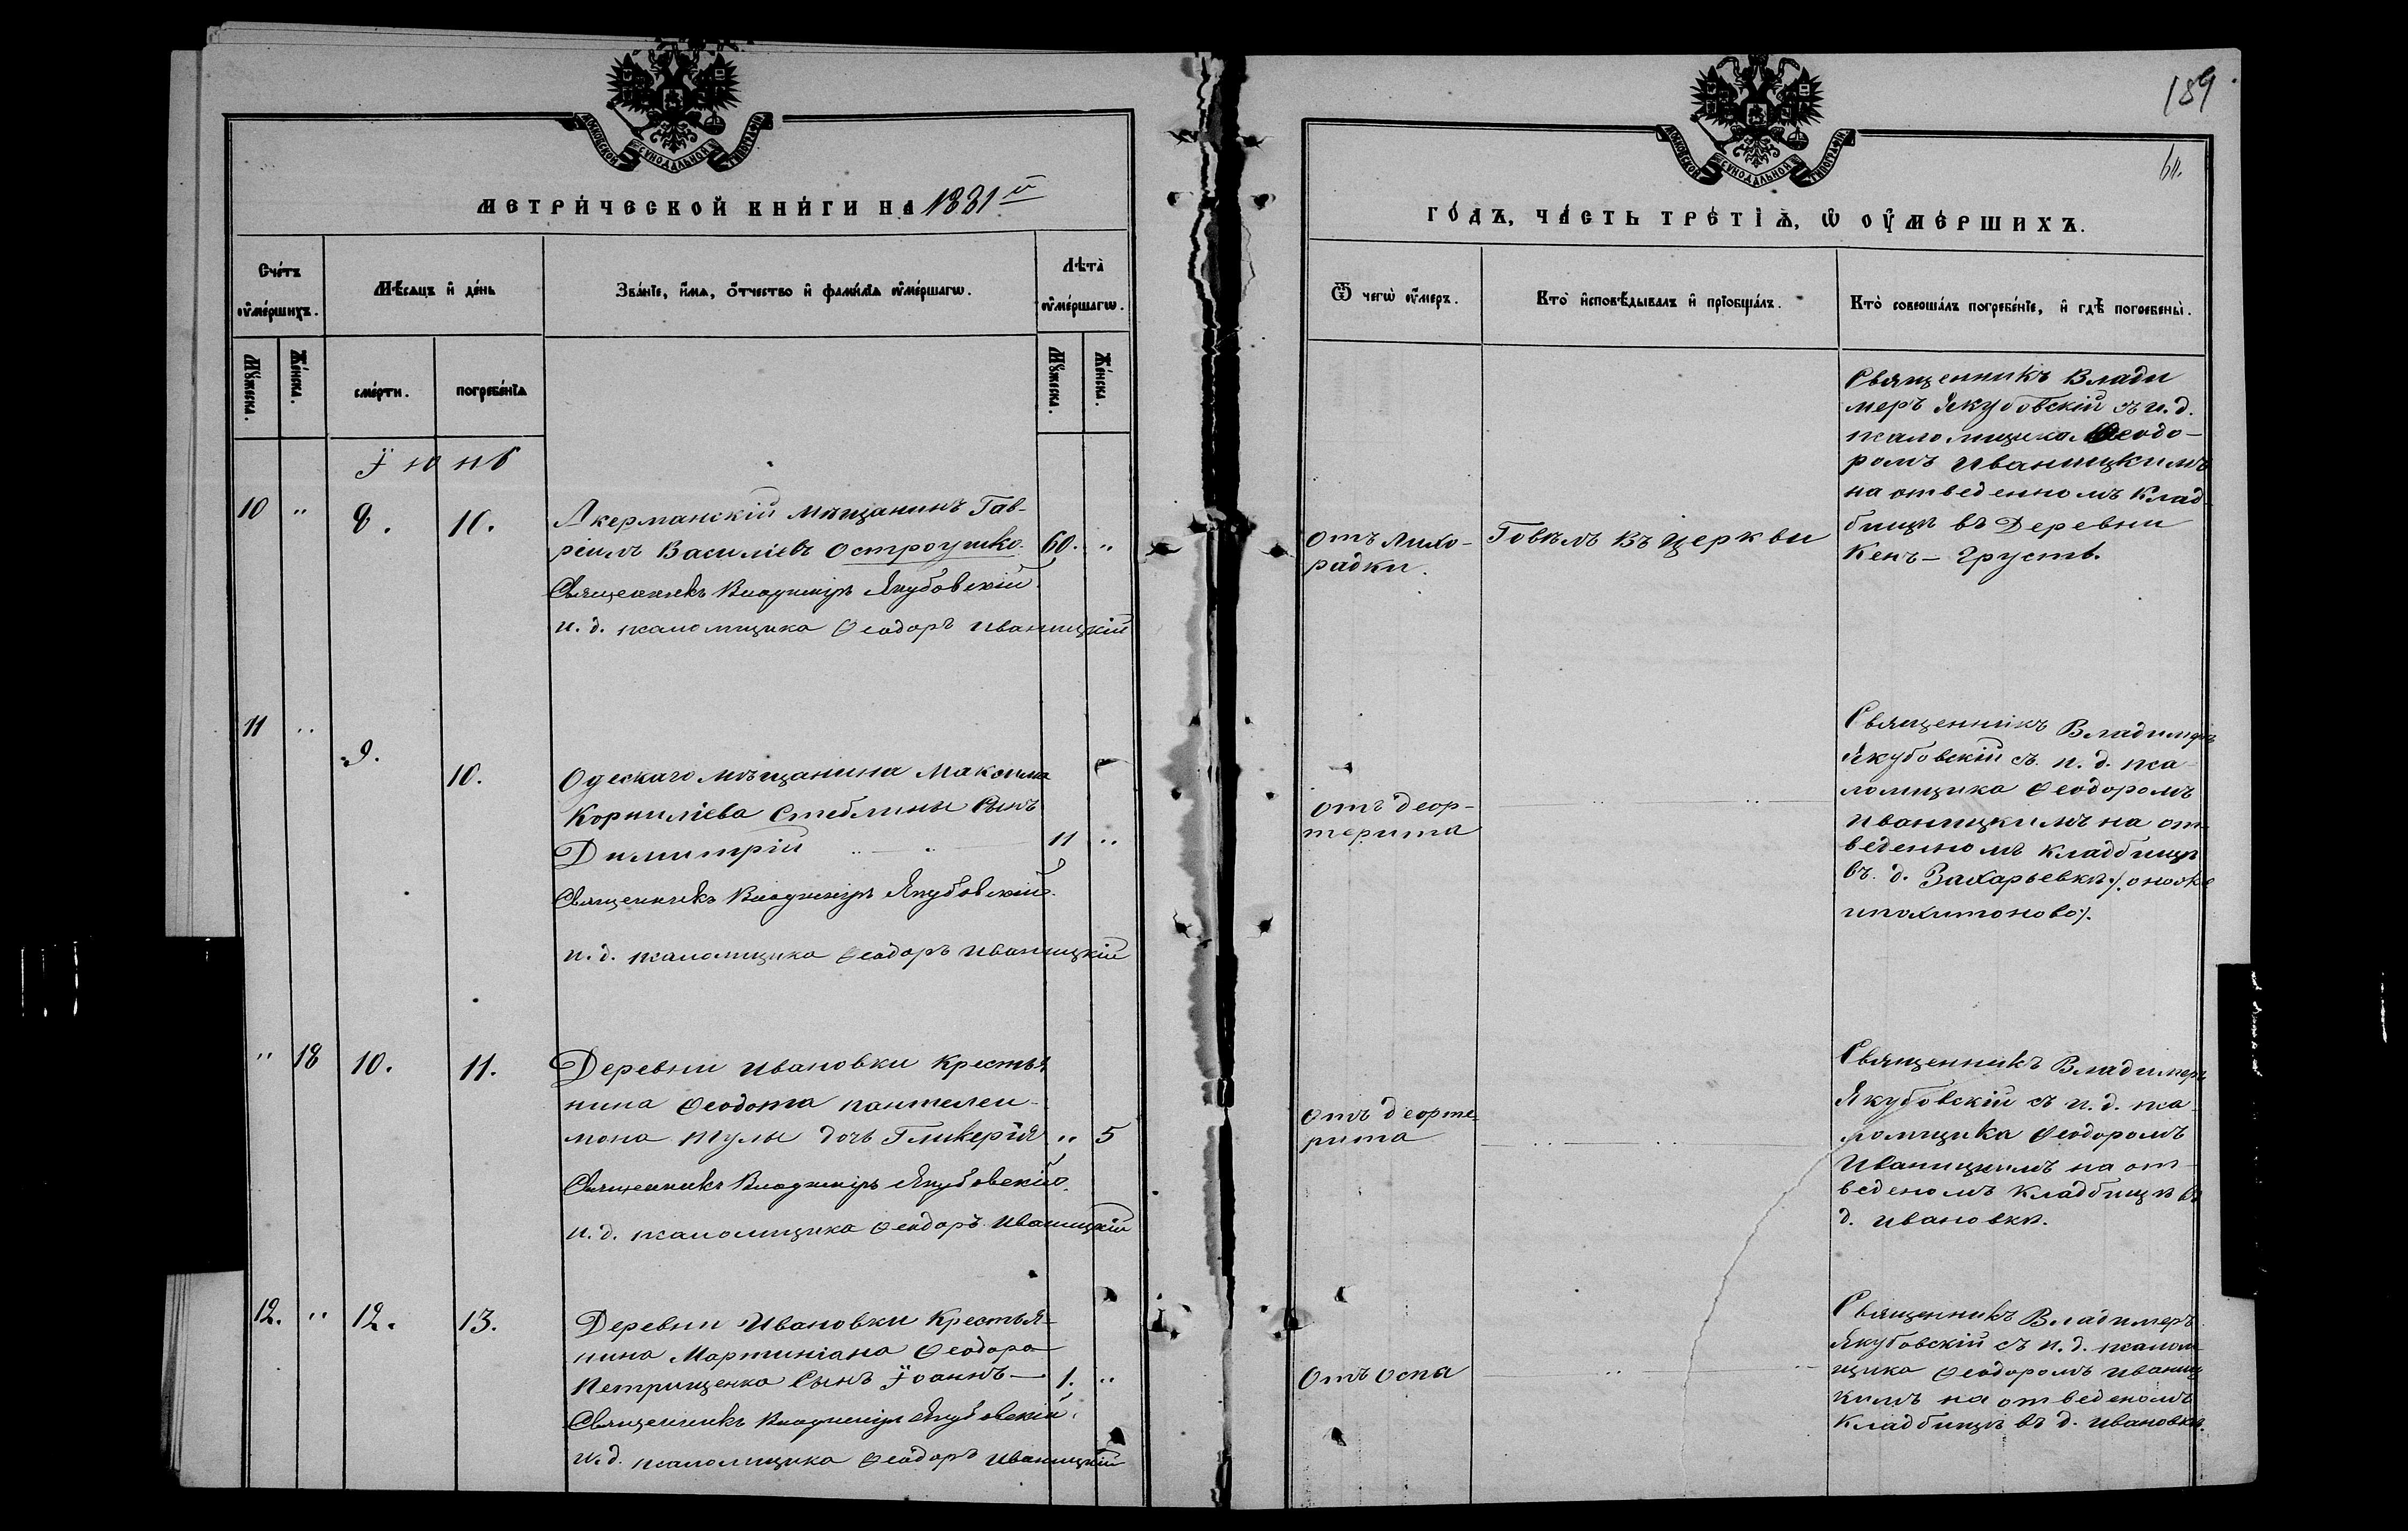 189
60.
МОСКОВСКОЙ СѴНОДАЛЬНОЙ ТИПОГРАФІИ
МОСКОВСКОЙ СѴНОДАЛЬНОЙ ТИПОГРАФІИ
МЕТРИ́ЧЕСКОЙ КНИ́ГИ НА 1881й
ГО́ДЪ, ЧА́СТЬ ТРЕ́ТІѦ, Ѡ ОУМЕ́РШИХЪ.
Сче́тъ оуме́ршихъ.
Мѣ́сяцъ и де́нь
Зва́нїе, и́мѧ, о́тчество и фами́лїѧ оуме́ршагѡ.
Лѣта̀ оуме́ршагѡ.
Ѿ чегѡ̀ оу́меръ.
Кто̀ исповѣ́дывалъ и прїобща́лъ.
Кто̀ соверша́лъ погребе́нїе, и гдѣ̀ погребены̀.
Му́жеска.
Же́нска.
сме́рти.
погребе́нїѧ
Му́жеска.
Же́нска.
Їюнь
10 " 8. 10.
Акерманскій мѣщанинъ Гав-
ріилъ Василіевъ Остроушко. 60. "
Священникъ Владиміръ Якубовскій.
и. д. псаломщика Ѳеодоръ Иваницкій
отъ лихо-
радки.
Говѣлъ въ церкви
Священникъ Влади
меръ Якубовскій съ и. д.
псаломщика Ѳеодо-
ромъ Иваницкимъ
на отведенномъ Клад
бищѣ въ Деревни
Кенъ-Грусть.
11 " 9. 10.
Одескаго мѣщанина Максима
Корниліева Стеблины Сынъ
Димитрій 11 "
Священникъ Владиміръ Якубовскій.
и. д. псаломщика Ѳеодоръ Иваницкій
отъ деор-
терита
Священникъ Владимеръ
Якубовскій съ и. д. пса
ломщика Ѳеодоромъ
Иваницкимъ на от
веденномъ кладбищѣ
въ. д. Захарьевкѣ /. оно же
ипохитоново /.
" 18 10. 11.
Деревни Ивановки крестья
нина Ѳеодота Пантелеи-
мона Тулы дочь Гликерія " 5
Священникъ Владиміръ Якубовскій.
и. д. псаломщика Ѳеодоръ Иваницкій
отъ деорте-
рита
Священникъ Владимеръ
Якубовскій съ и. д. пса
ломщика Ѳеодоромъ
Иваницкимъ на от-
веденомъ кладбищѣ въ
д. Ивановкѣ.
12. " 12. 13.
Деревни Ивановки Крестья-
нина Мартиніана Ѳеодора
Петрищенка Сынъ Їоаннъ 1. "
Священникъ Владиміръ Якубовскій.
и. д. псаломщика Ѳеодоръ Иваницкій
Отъ оспа
Священникъ Владимеръ
Якубовскій съ и. д. псалом
щика Ѳеодоромъ Иваниц
кимъ на отведеномъ
Кладбищѣ въ д. Ивановкѣ.